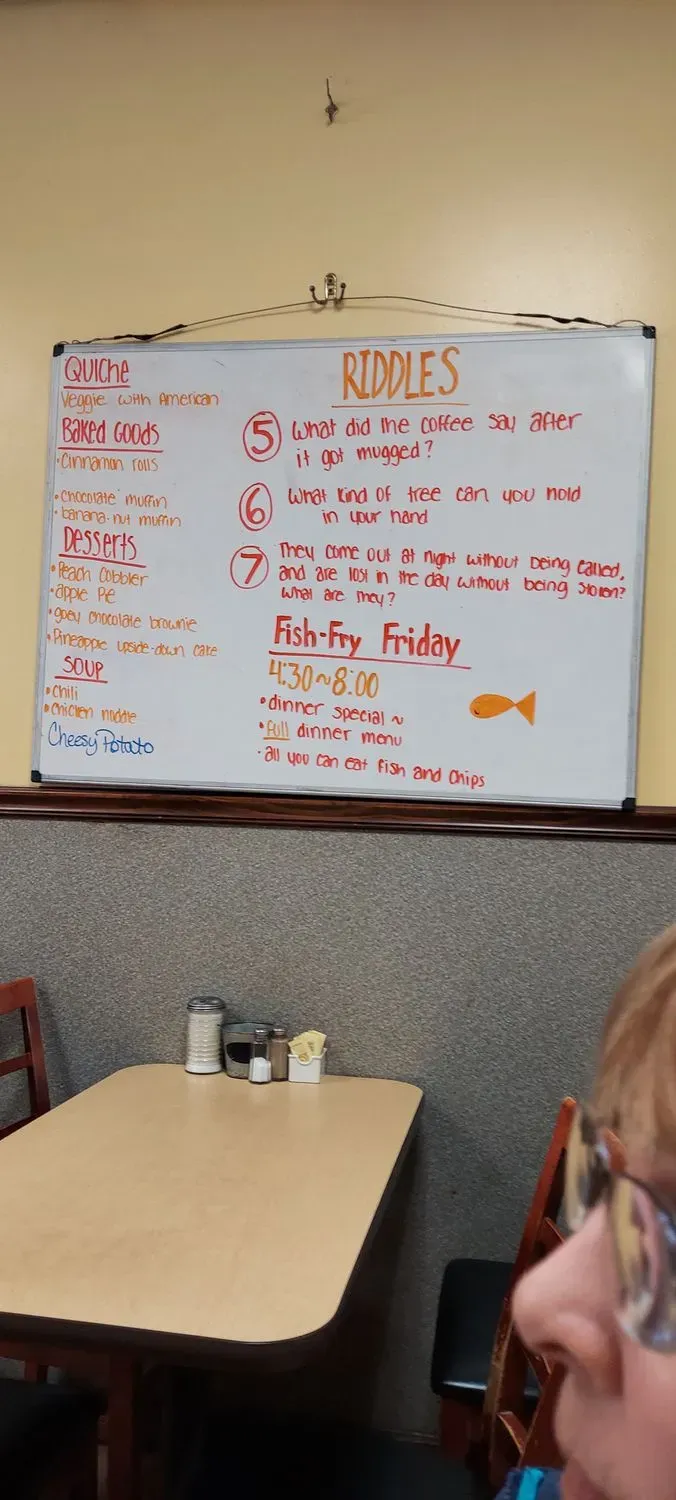 Quiche
Veggie with American
Baked Goods
• Cinnamon rolls
• chocolate muffin
• banana-nut muffin
Desserts
• Peach Cobbler
• apple Pie
• goey chocolate brownie
• Pineapple upside-down cake
Soup
• Chili
• chicken noddle
Cheesy Potato
RIDDLES
5 What did the coffee say after
it got mugged?
6 What kind of tree can you hold
in your hand
7 They come out at night without being called,
and are lost in the day without being stolen?
What are they?
Fish-Fry Friday
4:30~8:00
• dinner special ~
• full dinner menu
• all you can eat Fish and Chips